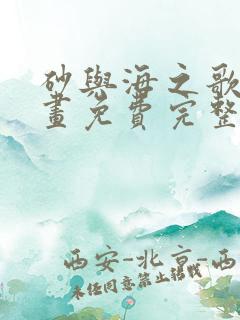 砂與海之歌
畫免費完整
西安-北京-西
未经同意禁止转载